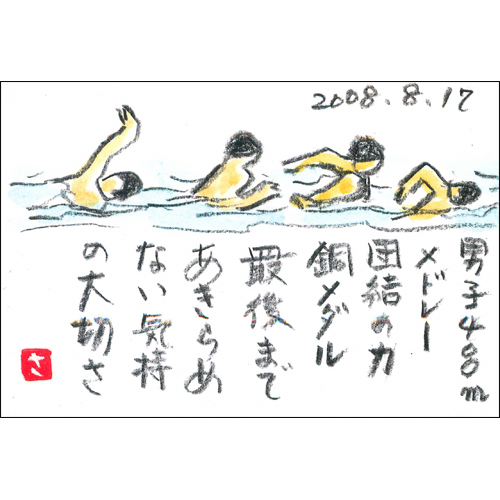 2008.8.17
男子400m
メドレー
団結の力
銅メダル
最後まで
あきらめ
ない気持
の大切さ
さ